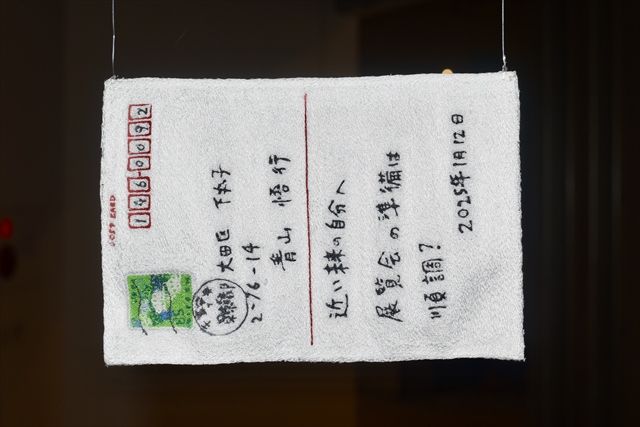 POST CARD
146-0092
大田区 下丸子
2-16-14
青山 悟 行
近い未来の自分へ
展覧会の準備は
順調?
2025年1月12日